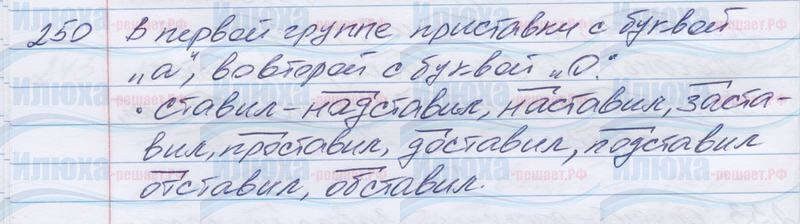 250 В первой группе приставки с буквой
„а", во второй с буквой „О".
• ставил - надставил, наставил, заста-
вил, проставил, доставил, подставил
отставил, обставил.